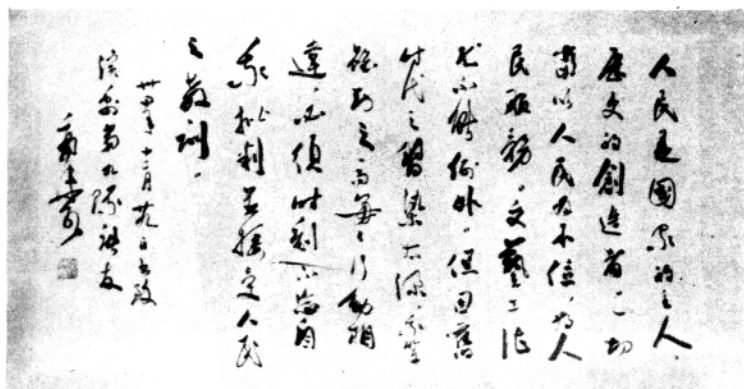 人民是國家的主人,
歷史的創造者,一切
當以人民為本位,為人
民服務。文藝工作
尤不能例外。但因舊
時代之習染太深,
之而每每行動相
違,必須時刻不忘自
我批判並接受人民
之教訓。
卅四年十二月廿九日書致
諸友
郭沫若